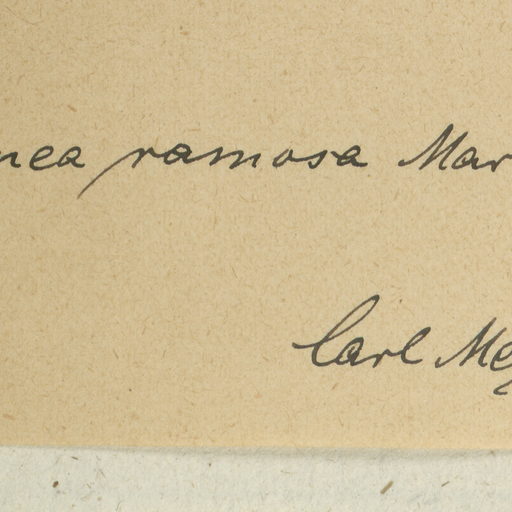 nea ramosa Mar
Carl Mey